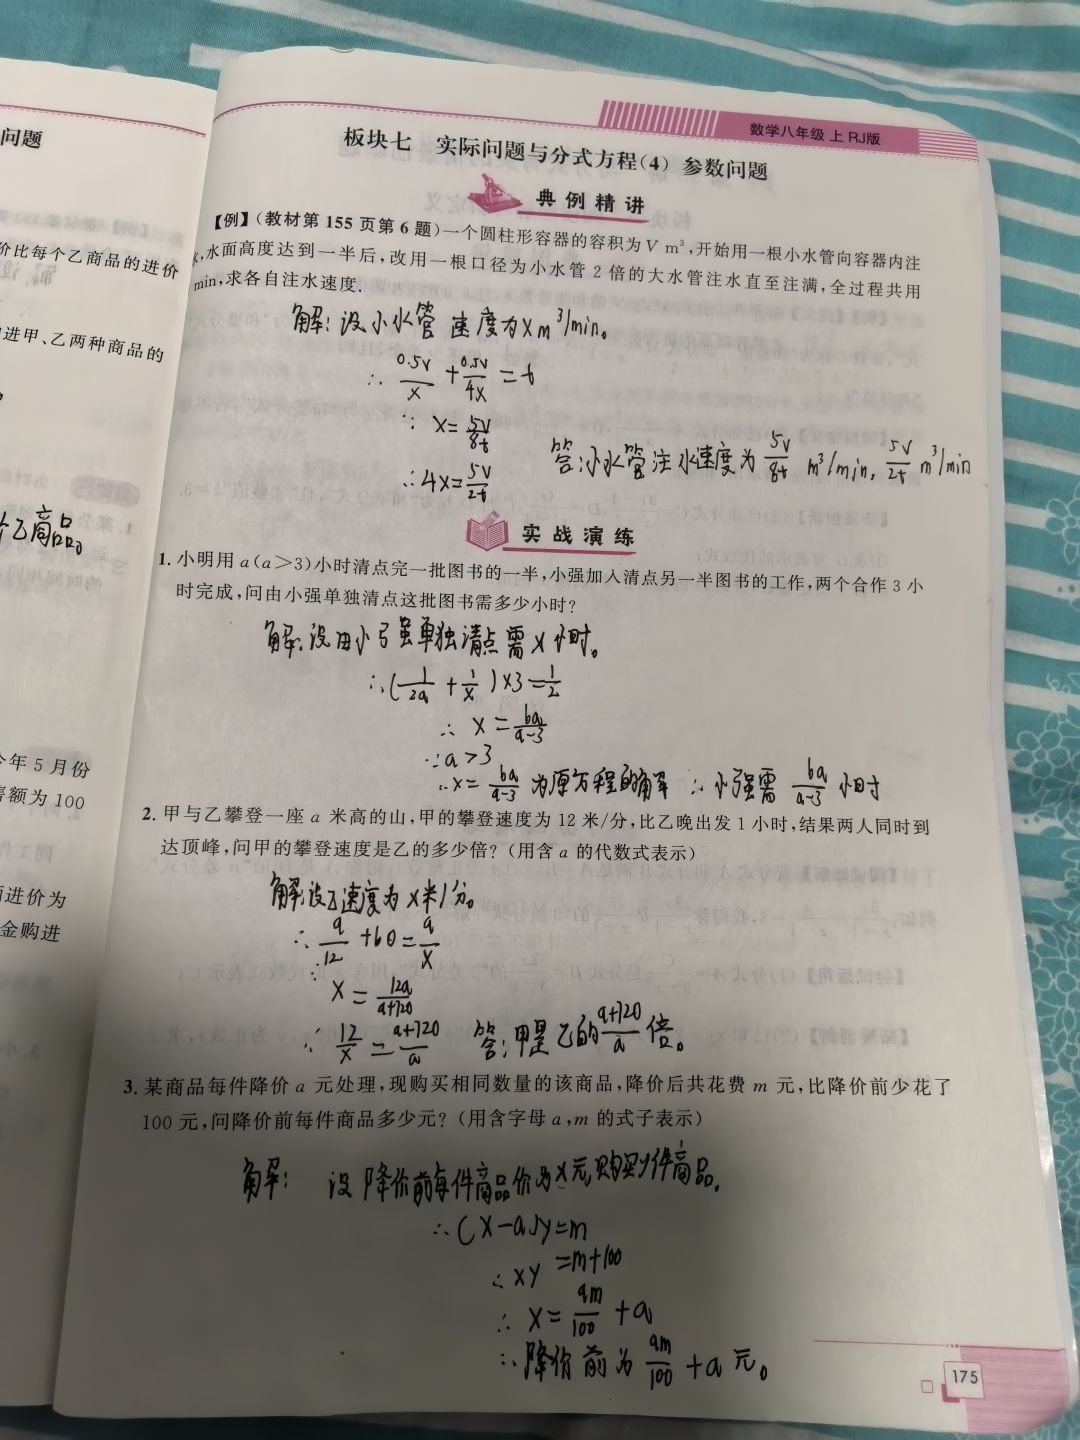 问题
价比每个乙商品的进价
进甲、乙两种商品的
个乙商品。
今年 5 月份
售额为 100
进价为
金购进
数学八年级 上 RJ版
板块七 实际问题与分式方程(4) 参数问题
典例精讲
【例】(教材第 155 页第 6 题)一个圆柱形容器的容积为 V m³,开始用一根小水管向容器内注
水,水面高度达到一半后,改用一根口径为小水管 2 倍的大水管注水直至注满,全过程共用
min,求各自注水速度.
解:设小水管 速度为xm³/min。
∴ 0.5V/x + 0.5V/4x = t
∴ x = 5V/8t
∴ 4x = 5V/2t 答:小水管注水速度为 5V/8t m³/min, 5V/2t m³/min
实战演练
1. 小明用 a(a>3)小时清点完一批图书的一半,小强加入清点另一半图书的工作,两个合作 3 小
时完成,问由小强单独清点这批图书需多少小时?
解:设由小强单独清点需x小时。
∴ (1/2a + 1/x)×3 = 1/2
∴ x = 6a/a-3
∵ a>3
∴ x = 6a/a-3 为原方程的解 ∴ 小强需 6a/a-3 小时
2. 甲与乙攀登一座 a 米高的山,甲的攀登速度为 12 米/分,比乙晚出发 1 小时,结果两人同时到
达顶峰,问甲的攀登速度是乙的多少倍?(用含 a 的代数式表示)
解:设乙速度为x米/分。
∴ a/12 + 60 = a/x
∴ x = 12a/a+720
∴ 12/x = a+720/a 答:甲是乙的 a+720/a 倍。
3. 某商品每件降价 a 元处理,现购买相同数量的该商品,降价后共花费 m 元,比降价前少花了
100 元,问降价前每件商品多少元?(用含字母 a,m 的式子表示)
解: 设降价前每件商品价为x元,购买y件商品。
∴ (x-a)y=m
∴ xy =m+100
∴ x = am/100 + a
∴ 降价前为 am/100 + a 元。
175